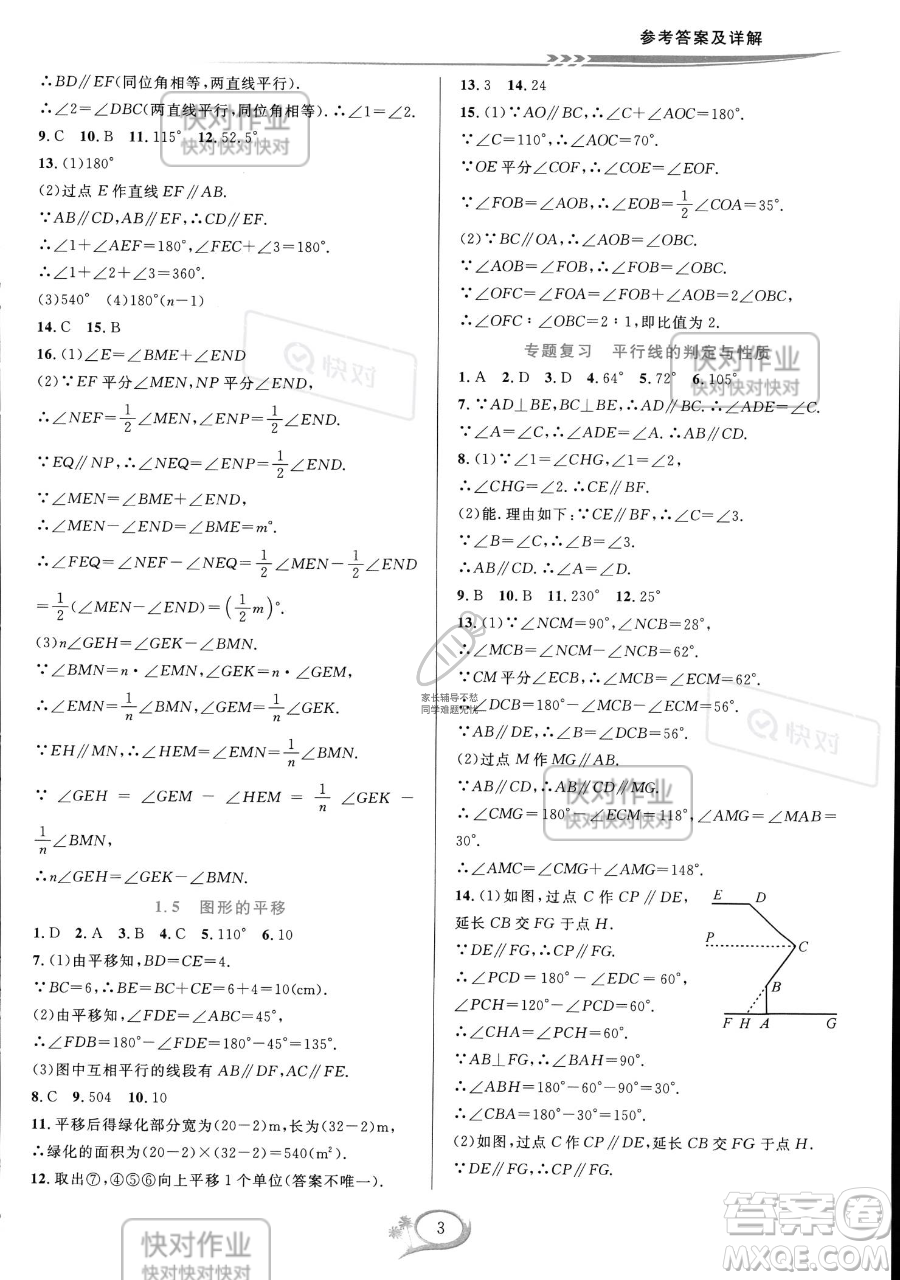 参考答案及详解
∴BD∥EF(同位角相等,两直线平行).
∴∠2=∠DBC(两直线平行,同位角相等).∴∠1=∠2.
9.C 10.B 11.115° 12.52.5°
13.(1)180°
(2)过点E作直线EF∥AB.
∵AB∥CD,AB∥EF,∴CD∥EF.
∴∠1+∠AEF=180°,∠FEC+∠3=180°.
∴∠1+∠2+∠3=360°.
(3)540° (4)180°(n-1)
14.C 15.B
16.(1)∠E=∠BME+∠END
(2)∵EF平分∠MEN,NP平分∠END,
∴∠NEF=1/2∠MEN,∠ENP=1/2∠END.
∵EQ∥NP,∴∠NEQ=∠ENP=1/2∠END.
∵∠MEN=∠BME+∠END,
∴∠MEN-∠END=∠BME=m°.
∴∠FEQ=∠NEF-∠NEQ=1/2∠MEN-1/2∠END
=1/2(∠MEN-∠END)=(1/2m)°.
(3)n∠GEH=∠GEK-∠BMN.
∵∠BMN=n·∠EMN,∠GEK=n·∠GEM,
∴∠EMN=1/n∠BMN,∠GEM=1/n∠GEK.
∵EH∥MN,∴∠HEM=∠EMN=1/n∠BMN.
∵∠GEH=∠GEM-∠HEM=1/n∠GEK-
1/n∠BMN,
∴n∠GEH=∠GEK-∠BMN.
1.5 图形的平移
1.D 2.A 3.B 4.C 5.110° 6.10
7.(1)由平移知,BD=CE=4.
∵BC=6,∴BE=BC+CE=6+4=10(cm).
(2)由平移知,∠FDE=∠ABC=45°,
∴∠FDB=180°-∠FDE=180°-45°=135°.
(3)图中互相平行的线段有AB∥DF,AC∥FE.
8.C 9.504 10.10
11.平移后得绿化部分宽为(20-2)m,长为(32-2)m,
∴绿化的面积为(20-2)×(32-2)=540(m²).
12.取出⑦,④⑤⑥向上平移1个单位(答案不唯一).
13.3 14.24
15.(1)∵AO∥BC,∴∠C+∠AOC=180°.
∵∠C=110°,∴∠AOC=70°.
∵OE平分∠COF,∴∠COE=∠EOF.
∵∠FOB=∠AOB,∴∠EOB=1/2∠COA=35°.
(2)∵BC∥OA,∴∠AOB=∠OBC.
∵∠AOB=∠FOB,∴∠FOB=∠OBC.
∴∠OFC=∠FOA=∠FOB+∠AOB=2∠OBC.
∴∠OFC∶∠OBC=2∶1,即比值为2.
专题复习 平行线的判定与性质
1.A 2.D 3.D 4.64° 5.72° 6.105°
7.∵AD⊥BE,BC⊥BE,∴AD∥BC.∴∠ADE=∠C.
∵∠A=∠C,∴∠ADE=∠A.∴AB∥CD.
8.(1)∵∠1=∠CHG,∠1=∠2,
∴∠CHG=∠2.∴CE∥BF.
(2)能.理由如下:∵CE∥BF,∴∠C=∠3.
∵∠B=∠C,∴∠B=∠3.
∴AB∥CD.∴∠A=∠D.
9.B 10.B 11.230° 12.25°
13.(1)∵∠NCM=90°,∠NCB=28°,
∴∠MCB=∠NCM-∠NCB=62°.
∵CM平分∠ECB,∴∠MCB=∠MCE=62°.
∴∠DCB=180°-∠MCB-∠MCE=56°.
∵AB∥CD,∴∠B=∠DCB=56°.
(2)过点M作MG∥AB.
∵AB∥CD,∴AB∥CD∥MG.
∴∠CMG=180°-∠ECM=118°,∠AMG=∠MAB=
30°.
∴∠AMC=∠CMG+∠AMG=148°.
14.(1)如图,过点C作CP∥DE,
延长CB交FG于点H.
∵DE∥FG,∴CP∥FG.
∴∠PCD=180°-∠EDC=60°,
∠PCH=120°-∠PCD=60°.
∴∠CHA=∠PCH=60°.
∵AB⊥FG,∴∠BAH=90°.
∴∠ABH=180°-60°-90°=30°.
∴∠ABC=180°-∠ABH=150°.
(2)如图,过点C作CP∥DE,延长CB交FG于点H.
E D
P C
B
F H A G
3
快对作业
快对快对快对
快对
快对作业
快对快对快对
快对
快对作业
快对快对快对
快对作业
快对快对快对
快对作业
快对快对快对
家长辅导不愁
同学难题无忧
答案卷
MXQE.COM